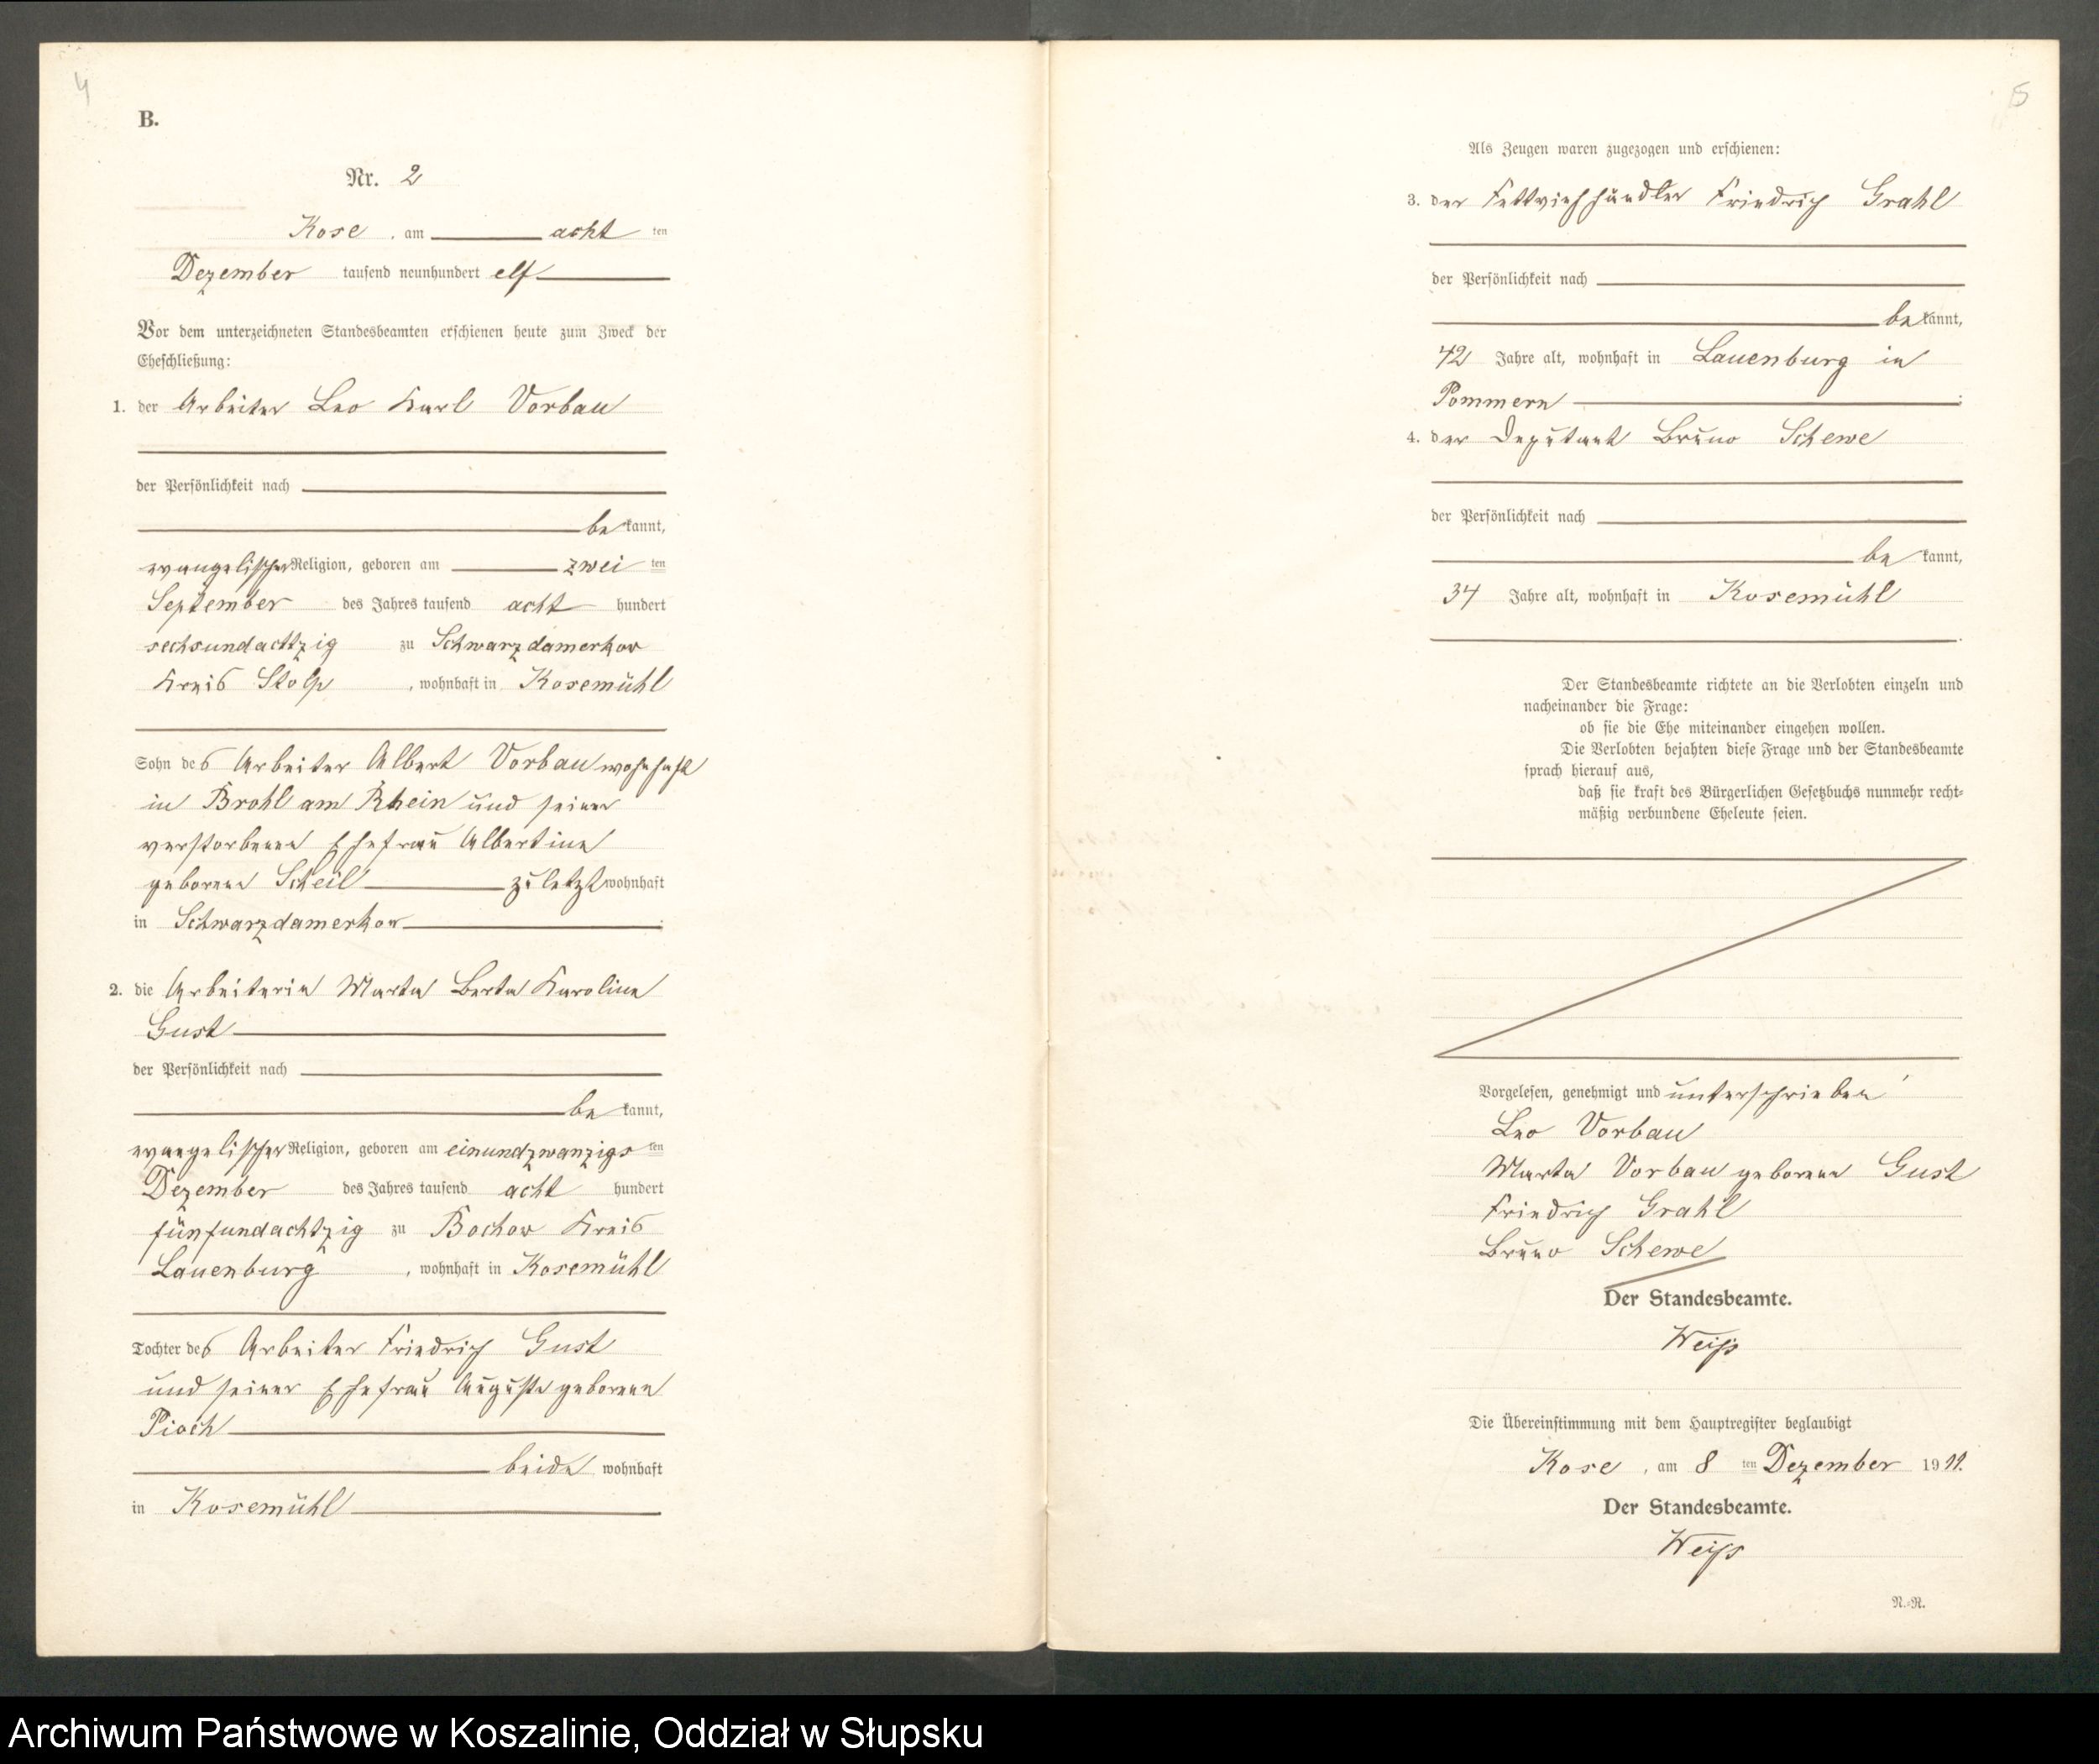 4
B.
Nr. 2
Kose, am acht ten
Dezember tausend neunhundert elf
Vor dem unterzeichneten Standesbeamten erschienen heute zum Zweck der
Eheschließung:
1. der Arbeiter Leo Karl Vorbau
der Persönlichkeit nach
bekannt,
evangelischer Religion, geboren am zwei ten
September des Jahres tausend acht hundert
sechsundachtzig zu Schwarzdamerkow
Kreis Stolp, wohnhaft in Kosemühl
Sohn des Arbeiter Albert Vorbau wohnhaft
in Brohl am Rhein und seiner
verstorbenen Ehefrau Albertine
geborene Scheil zuletzt wohnhaft
in Schwarzdamerkow.
2. die Arbeiterin Marta Berta Karoline
Gust
der Persönlichkeit nach
bekannt,
evangelischer Religion, geboren am einundzwanzigs ten
Dezember des Jahres tausend acht hundert
fünfundachtzig zu Bochow Kreis
Lauenburg, wohnhaft in Kosemühl
Tochter des Arbeiter Friedrich Gust
und seiner Ehefrau Auguste geborene
Pioch
beide wohnhaft
in Kosemühl
5
Als Zeugen waren zugezogen und erschienen:
3. der Fettviehhändler Friedrich Grahl
der Persönlichkeit nach
bekannt,
42 Jahre alt, wohnhaft in Lauenburg in
Pommern;
4. der Deputant Bruno Schewe
der Persönlichkeit nach
bekannt,
34 Jahre alt, wohnhaft in Kosemühl
.
Der Standesbeamte richtete an die Verlobten einzeln und
nacheinander die Frage:
ob sie die Ehe miteinander eingehen wollen.
Die Verlobten bejahten diese Frage und der Standesbeamte
sprach hierauf aus,
daß sie kraft des Bürgerlichen Gesetzbuchs nunmehr recht-
mäßig verbundene Eheleute seien.
Vorgelesen, genehmigt und unterschrieben
Leo Vorbau
Marta Vorbau geborene Gust
Friedrich Grahl
Bruno Schewe
Der Standesbeamte.
Weiß
Die Übereinstimmung mit dem Hauptregister beglaubigt
Kose, am 8 ten Dezember 1911.
Der Standesbeamte.
Weiß
N.-R.
Archiwum Państwowe w Koszalinie, Oddział w Słupsku